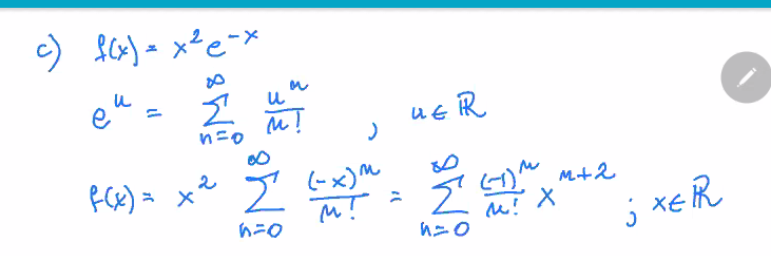 c) f(x) = x²e⁻ˣ
eᵘ = ∑_{n=0}^{∞} uⁿ/n! , u ∈ ℝ
f(x) = x² ∑_{n=0}^{∞} (-x)ⁿ/n! = ∑_{n=0}^{∞} (-1)ⁿ/n! xⁿ⁺² ; x ∈ ℝ